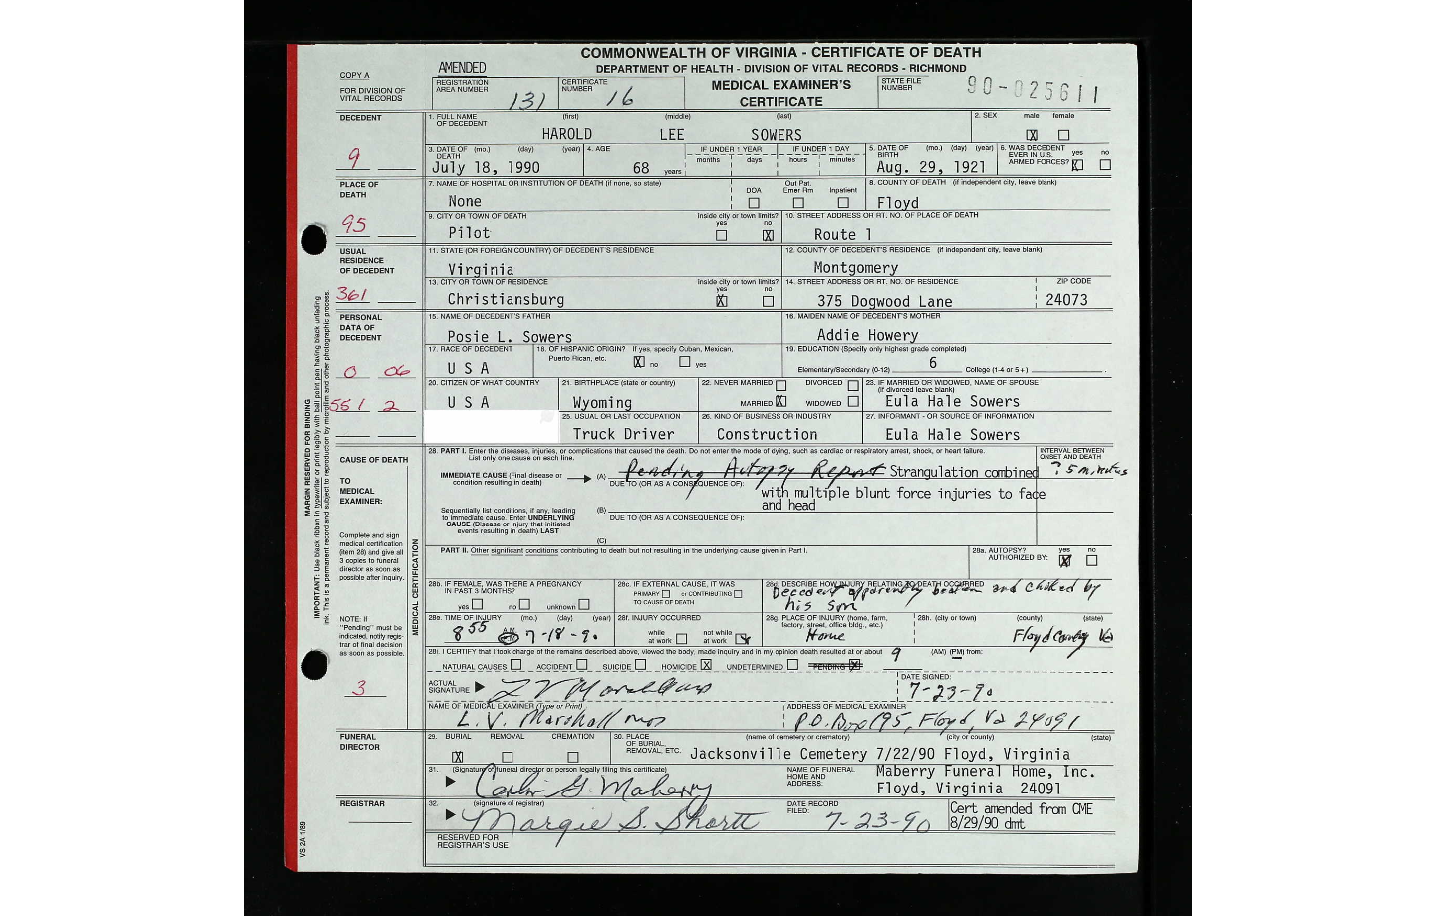 COMMONWEALTH OF VIRGINIA - CERTIFICATE OF DEATH
DEPARTMENT OF HEALTH - DIVISION OF VITAL RECORDS - RICHMOND
COPY A
FOR DIVISION OF VITAL RECORDS
AMENDED
REGISTRATION AREA NUMBER 131
CERTIFICATE NUMBER 16
MEDICAL EXAMINER'S CERTIFICATE
STATE FILE NUMBER 90-025611
DECEDENT
9
1. FULL NAME OF DECEDENT (first) (middle) (last)
HAROLD LEE SOWERS
2. SEX male X female
3. DATE OF DEATH (mo.) (day) (year)
July 18, 1990
4. AGE
68 years
IF UNDER 1 YEAR months days
IF UNDER 1 DAY hours minutes
5. DATE OF BIRTH (mo.) (day) (year)
Aug. 29, 1921
6. WAS DECEDENT EVER IN U.S. ARMED FORCES? yes X no
PLACE OF DEATH
95
7. NAME OF HOSPITAL OR INSTITUTION OF DEATH (if none, so state)
None
DOA Out Pat. Emer Rm Inpatient
8. COUNTY OF DEATH (if independent city, leave blank)
Floyd
9. CITY OR TOWN OF DEATH
Pilot
inside city or town limits? yes no X
10. STREET ADDRESS OR RT. NO. OF PLACE OF DEATH
Route 1
USUAL RESIDENCE OF DECEDENT
361
11. STATE (OR FOREIGN COUNTRY) OF DECEDENT'S RESIDENCE
Virginia
12. COUNTY OF DECEDENT'S RESIDENCE (if independent city, leave blank)
Montgomery
13. CITY OR TOWN OF RESIDENCE
Christiansburg
inside city or town limits? yes X no
14. STREET ADDRESS OR RT. NO. OF RESIDENCE
375 Dogwood Lane
ZIP CODE
24073
PERSONAL DATA OF DECEDENT
0 06
551 2
15. NAME OF DECEDENT'S FATHER
Posie L. Sowers
16. MAIDEN NAME OF DECEDENT'S MOTHER
Addie Howery
17. RACE OF DECEDENT
U S A
18. OF HISPANIC ORIGIN? If yes, specify Cuban, Mexican, Puerto Rican, etc. X no yes
19. EDUCATION (Specify only highest grade completed)
Elementary/Secondary (0-12) 6 College (1-4 or 5+)
20. CITIZEN OF WHAT COUNTRY
U S A
21. BIRTHPLACE (state or country)
Wyoming
22. NEVER MARRIED DIVORCED
MARRIED X WIDOWED
23. IF MARRIED OR WIDOWED, NAME OF SPOUSE (if divorced leave blank)
Eula Hale Sowers
25. USUAL OR LAST OCCUPATION
Truck Driver
26. KIND OF BUSINESS OR INDUSTRY
Construction
27. INFORMANT - OR SOURCE OF INFORMATION
Eula Hale Sowers
CAUSE OF DEATH
TO MEDICAL EXAMINER:
Complete and sign medical certification (item 28) and give all 3 copies to funeral director as soon as possible after inquiry.
NOTE: If "Pending" must be indicated, notify registrar of final decision as soon as possible.
3
MEDICAL CERTIFICATION
MARGIN RESERVED FOR BINDING
IMPORTANT: Use black ribbon in typewriter or print legibly with ball point pen having black unfading ink. This is a permanent record and subject to reproduction by microfilm and other photographic process.
28. PART I. Enter the diseases, injuries, or complications that caused the death. Do not enter the mode of dying, such as cardiac or respiratory arrest, shock, or heart failure.
List only one cause on each line.
INTERVAL BETWEEN ONSET AND DEATH
IMMEDIATE CAUSE (Final disease or condition resulting in death) (A) Pending Autopsy Report Strangulation combined ? 5 minutes
DUE TO (OR AS A CONSEQUENCE OF): with multiple blunt force injuries to face
and head
Sequentially list conditions, if any, leading to immediate cause. Enter UNDERLYING CAUSE (Disease or injury that initiated events resulting in death) LAST
(B)
DUE TO (OR AS A CONSEQUENCE OF):
(C)
PART II. Other significant conditions contributing to death but not resulting in the underlying cause given in Part I.
28a. AUTOPSY? AUTHORIZED BY: yes X no
28b. IF FEMALE, WAS THERE A PREGNANCY IN PAST 3 MONTHS?
yes no unknown
28c. IF EXTERNAL CAUSE, IT WAS
PRIMARY or CONTRIBUTING
TO CAUSE OF DEATH
28d. DESCRIBE HOW INJURY RELATING TO DEATH OCCURRED
Decedent apparently beaten and choked by
his son
28e. TIME OF INJURY (mo.) (day) (year)
8 55 7-18-90
28f. INJURY OCCURRED
while at work not while at work X
28g. PLACE OF INJURY (home, farm, factory, street, office bldg., etc.)
Home
28h. (city or town) (county) (state)
Floyd County Va
28i. I CERTIFY that I took charge of the remains described above, viewed the body, made inquiry and in my opinion death resulted at or about 9 (AM) (PM) from:
NATURAL CAUSES ACCIDENT SUICIDE HOMICIDE X UNDETERMINED PENDING X
ACTUAL SIGNATURE L V Marshall
DATE SIGNED:
7-23-90
NAME OF MEDICAL EXAMINER (Type or Print)
L. V. Marshall
ADDRESS OF MEDICAL EXAMINER
P.O. Box 195, Floyd, Va 24091
FUNERAL DIRECTOR
29. BURIAL X REMOVAL CREMATION
30. PLACE OF BURIAL, REMOVAL, ETC. (name of cemetery or crematory) (city or county) (state)
Jacksonville Cemetery 7/22/90 Floyd, Virginia
31. (Signature of funeral director or person legally filing this certificate)
G. Maberry
NAME OF FUNERAL HOME AND ADDRESS:
Maberry Funeral Home, Inc.
Floyd, Virginia 24091
REGISTRAR
32. (signature of registrar)
Margie S. Shortt
DATE RECORD FILED:
7-23-90
Cert amended from CME
8/29/90 dmt
RESERVED FOR REGISTRAR'S USE
VS 2A 1/89